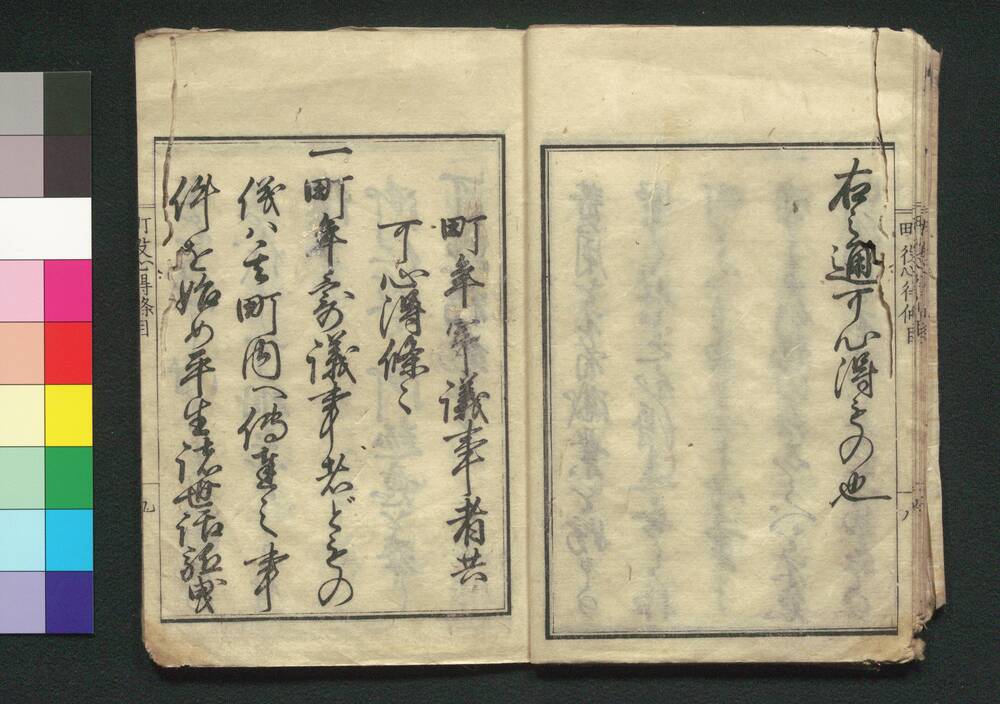 右之通可心得もの也
町年寄議事者共
可心得條々
一町年寄議事者どもの
儀ハ其町内へ傳達之事
件を始め平生諸世話
町役心得條目
九
町役心得條目
八